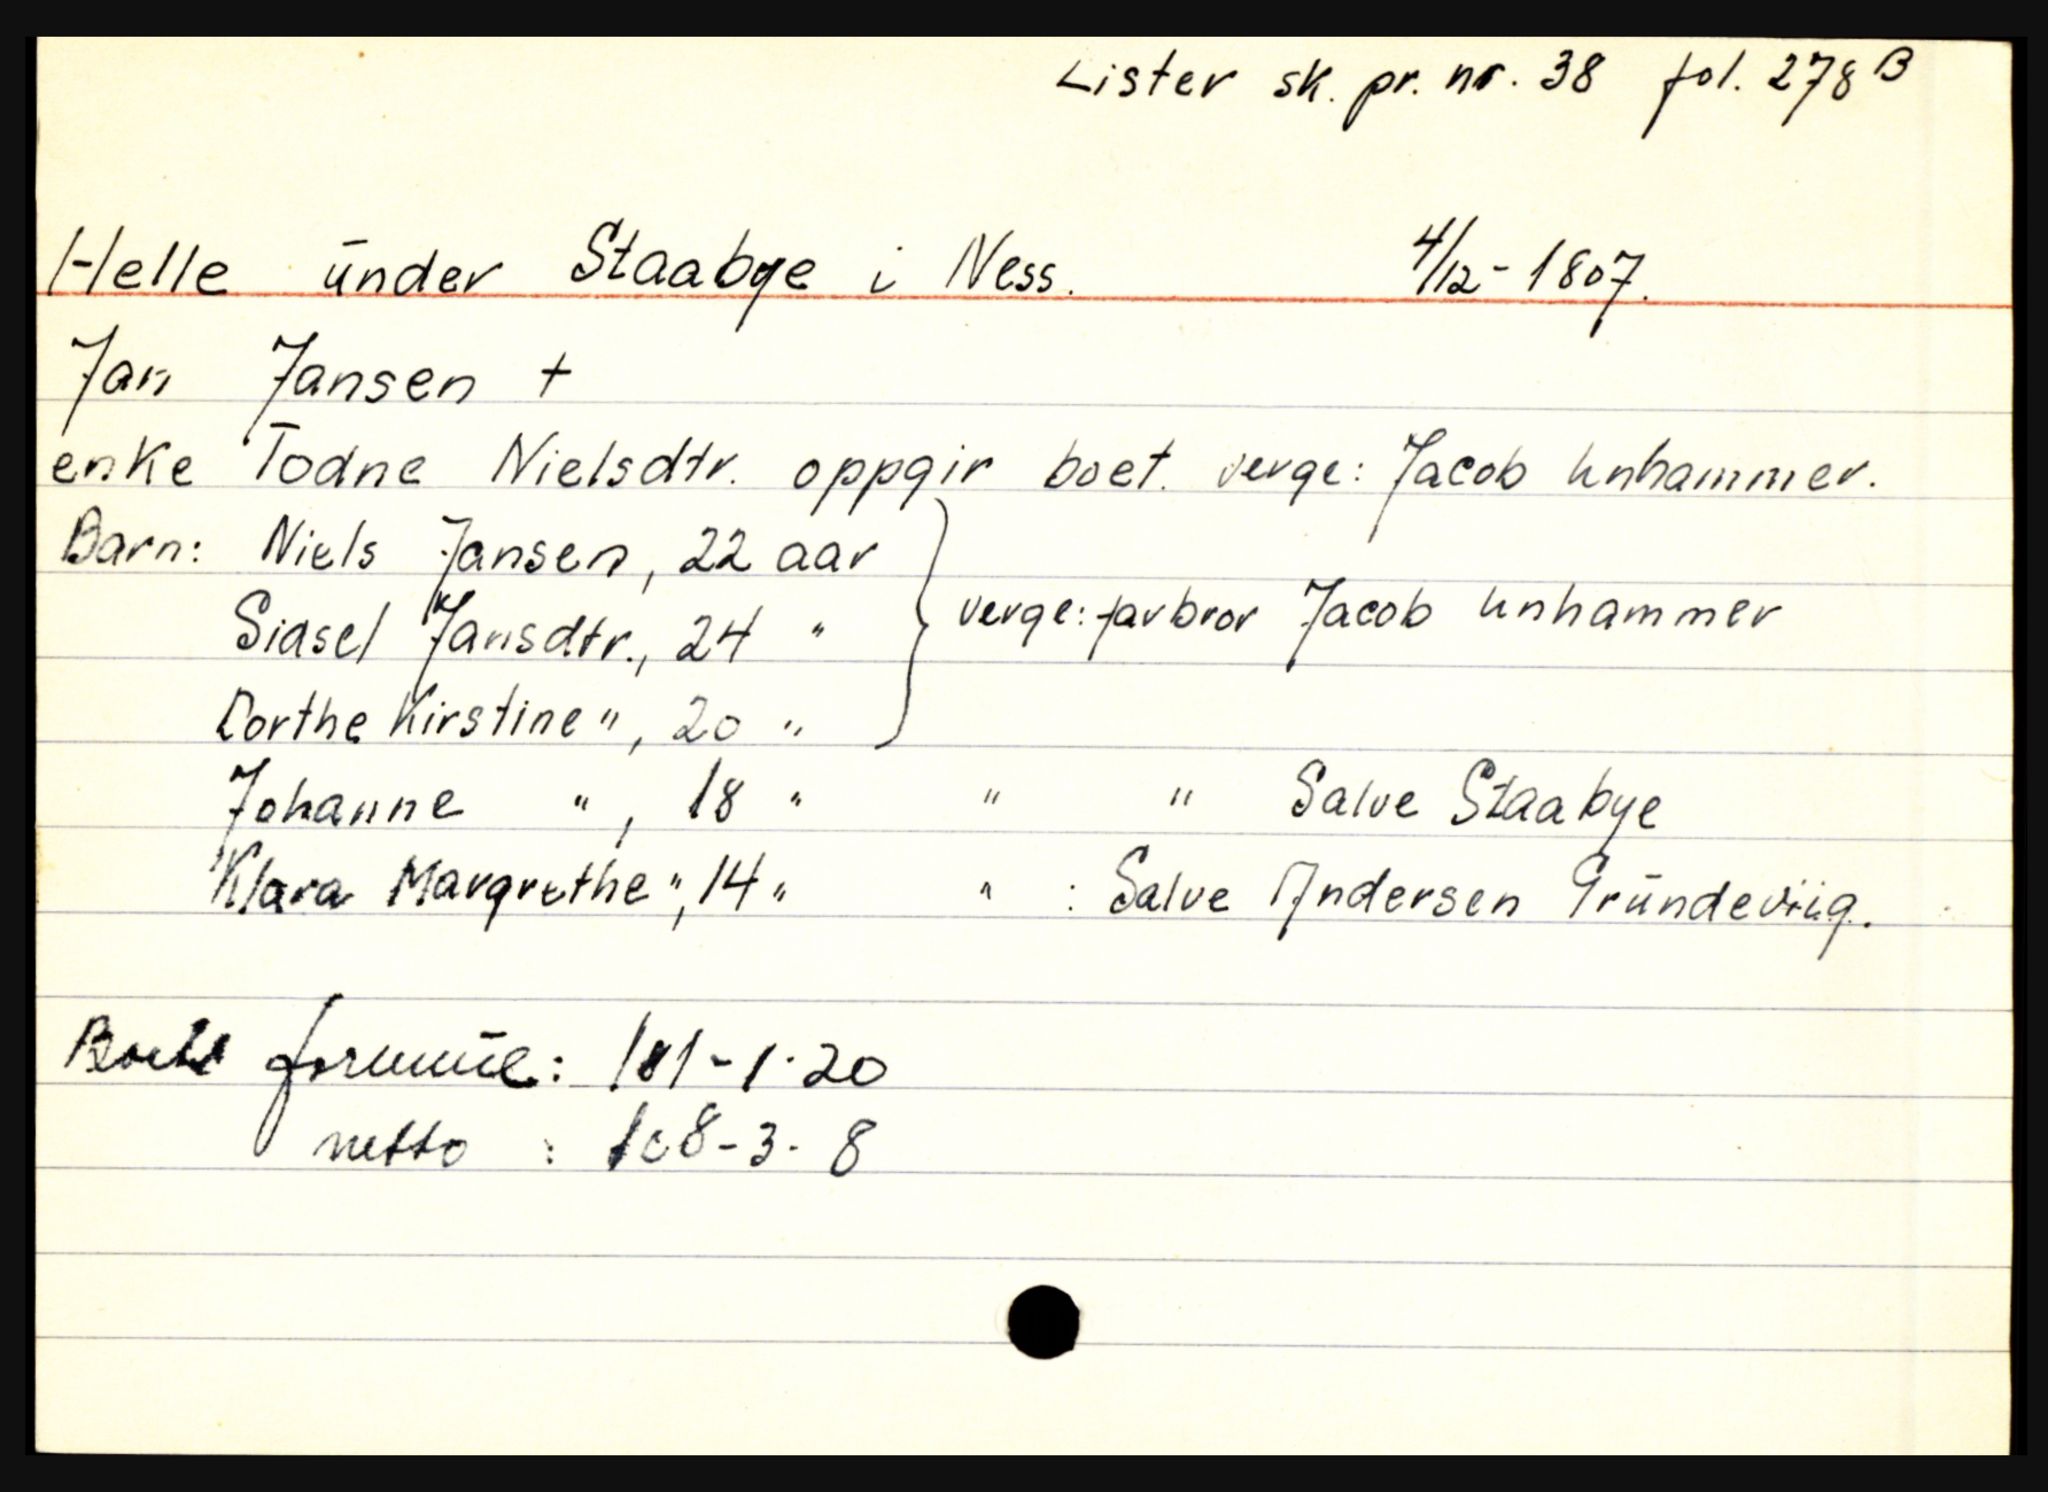 Lister sk. pr. nr. 38 fol. 278 B
Helle under Staabye i Ness. 4/12-1807.
Jan Jansen +
enke Todne Nielsdtr. oppgir boet. verge: Jacob Unhammer.
Barn: Niels Jansen, 22 aar
Siasel Jansdtr., 24 "
verge: farbror Jacob Unhammer
Dorthe Kirstine ", 20 "
Johanne ", 18 " " " Salve Staabye
Klara Margrethe ", 14 " " : Salve Andersen Grundeviig.
Boets formue: 181-1-20
netto : 108-3-8